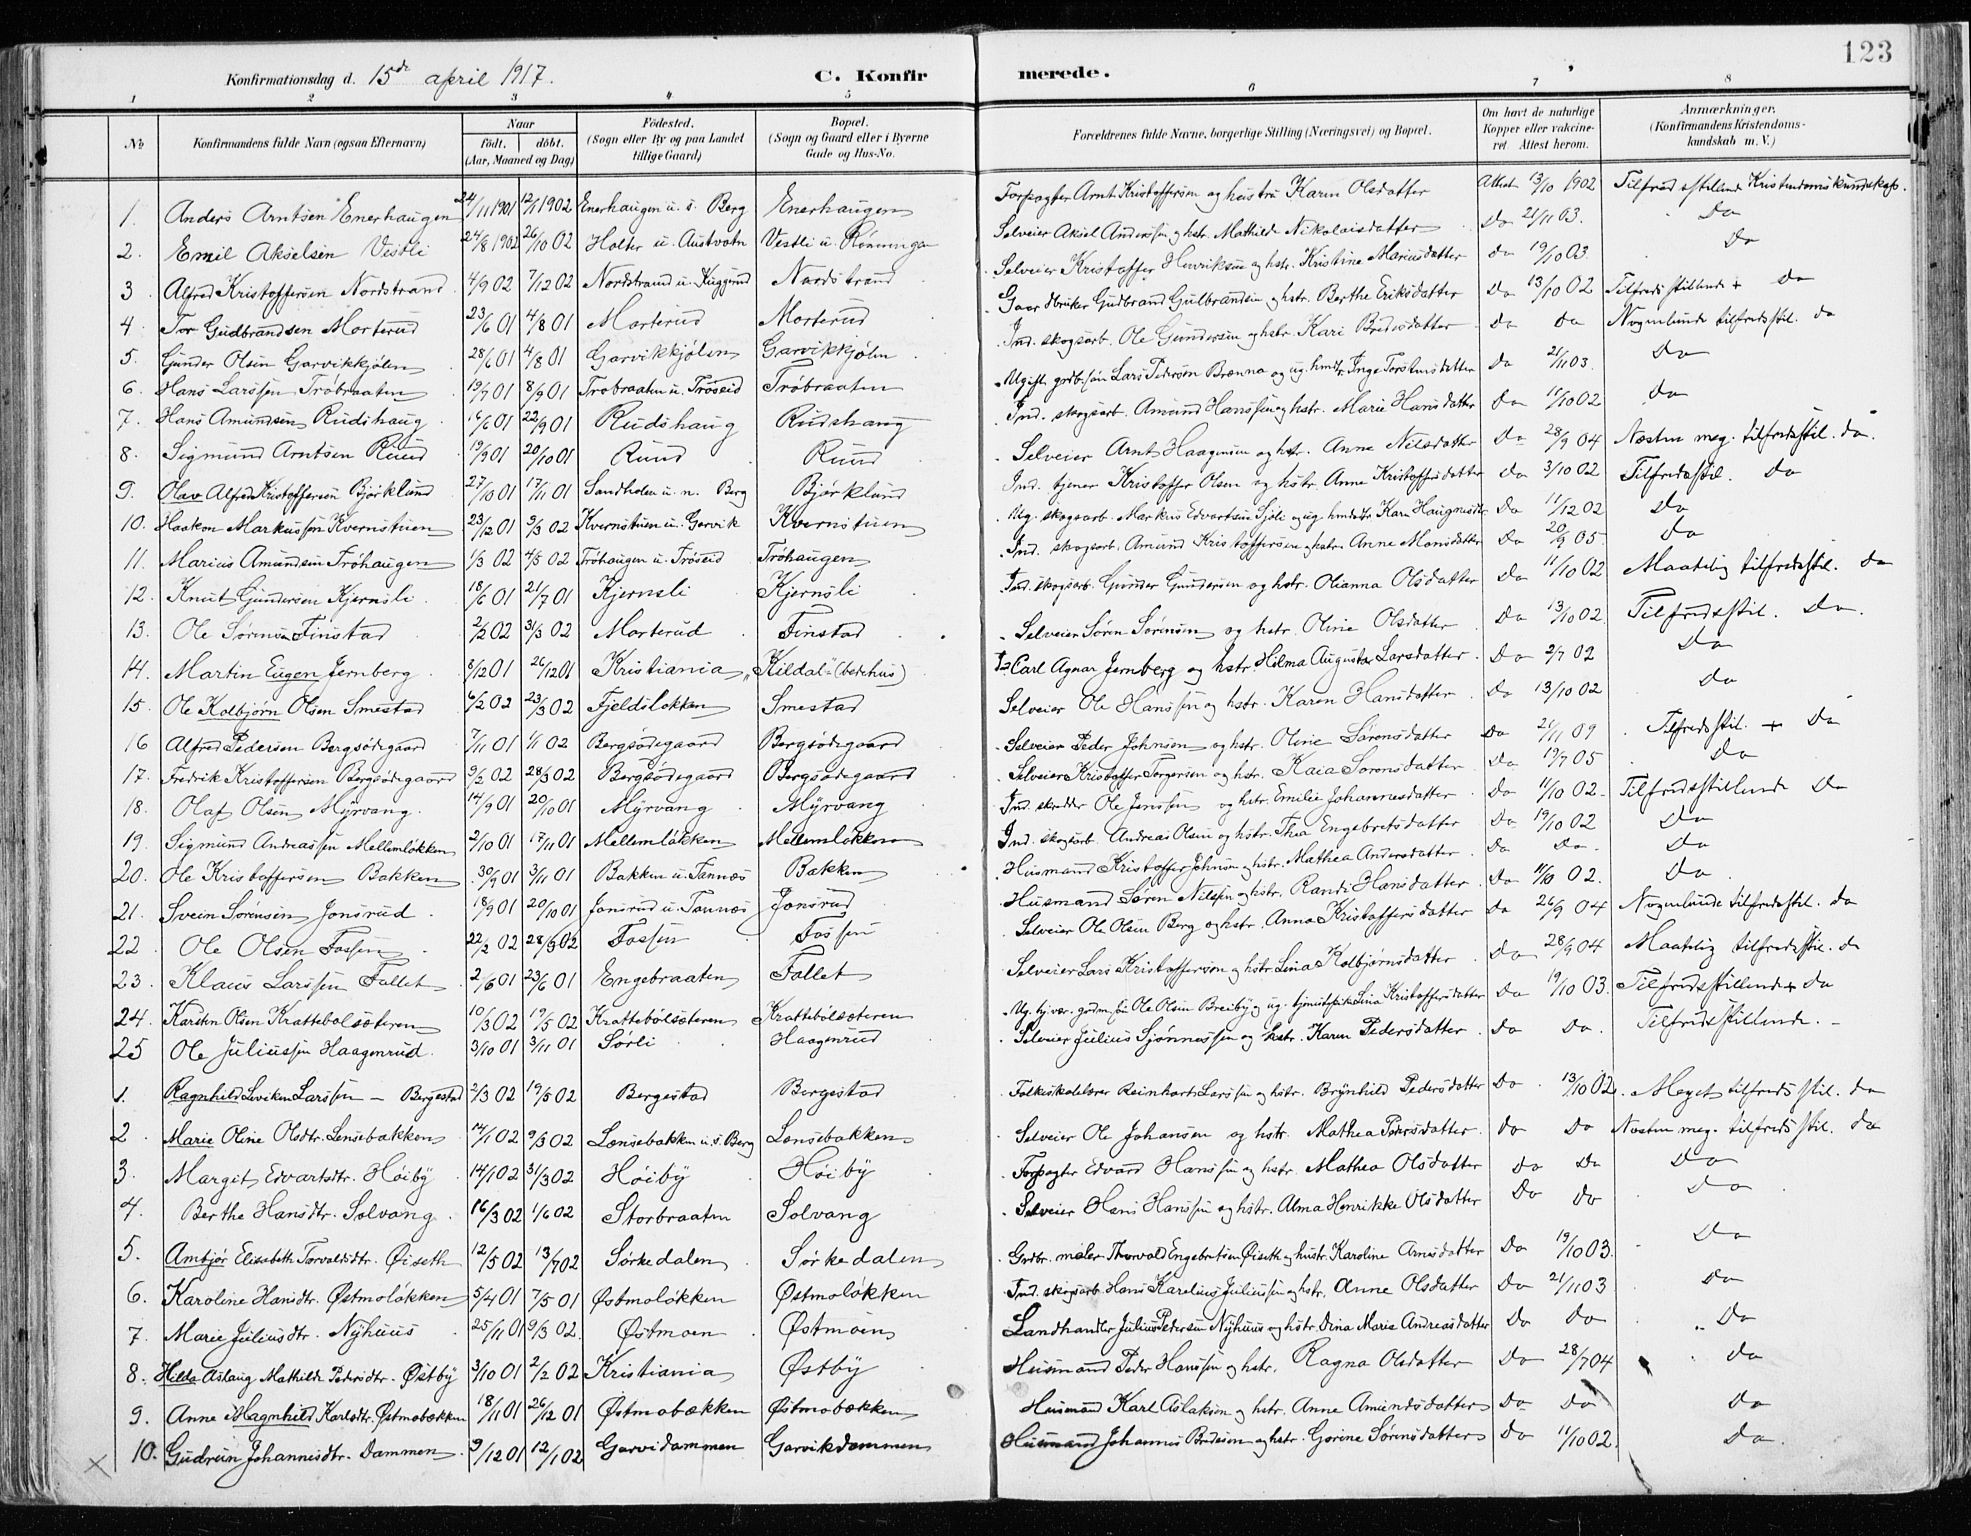 123
Konfirmationsdag d. 15de april 1917. C. Konfirmerede.
1 2 3 4 5 6 7 8
№ Konfirmandens fulde Navn (ogsaa Efternavn) Naar født. døbt. (Aar, Maaned og Dag) Fødested. (Sogn eller By og paa Landet tillige Gaard) Bopæl. (Sogn og Gaard eller i Byerne Gade og Hus-No. Forældrenes fulde Navne, borgerlige Stilling (Næringsvei) og Bopæl. Om havt de naturlige Kopper eller vakcineret Attest herom. Anmærkninger. (Konfirmandens Kristendomskundskab m. V.)
1. Anders Arntsen Enerhaugen 24/11 1901 12/1 1902 Enerhaugen u. s. Berg Enerhaugen Forpagter Arnt Kristoffersen og hustru Karen Olsdatter Attest 13/10 1902 Tilfredsstillende Kristendomskundskap.
2. Emil Akselsen Vestli 24/8 1902 26/10 02 Holter u. Austvatn Vestli u. Rönningen Selveier Aksel Anderssen og hstr. Mathilde Nikolaisdatter Do 21/11 03. Do
3. Alfred Kristoffersen Nordstrand 4/9 02 7/12 02 Nordstrand u. Kuggerud Nordstrand Selveier Kristoffer Henriksen og hstr. Kristine Mariusdatter do 19/10 03. Do
4. Tor Gudbrandsen Morterud 23/6 01 4/8 01 Morterud Morterud Gaardbruker Gudbrand Gulbrandsen og hstr. Berthe Eriksdatter Do 13/10 02 Tilfredsstillende + do
5. Gunder Olsen Garvikkjølen 28/6 01 4/8 01 Garvikkjølen Garvikkjølen Ind. skogsarb. Ole Gundersen og hstr. Kari Bredesdatter Do Do Nogenlunde tilfredsstil. do
6. Hans Larssen Tröbraaten 19/7 01 8/9 01 Tröbraaten u. Tröseid Tröbraaten Ugift grdb.søn Lars Pedersen Brænna og ug. hmdtr Inge Torstensdatter Do 21/11 03. Do
7. Hans Amundsen Rudshaug 16/6 01 22/9 01 Rudshaug Rudshaug Ind. skogsarb. Amund Hanssen og hstr. Marie Hansdatter Do 11/10 02 Do
8. Sigmund Arntsen Ruud 19/9 01 20/10 01 Ruud Ruud Selveier Arnt Haagensen og hstr. Anne Nilsdatter Do 28/9 04 Næsten meg. tilfredsstil. do.
9. Olav Alfred Kristoffersen Bjørklund 27/10 01 17/11 01 Sandholen u. n. Berg Bjørklund Ind. tjener Kristoffer Olsen og hstr. Anne Kristoffersdatter Do 3/10 02 Tilfredsstil. Do
10. Haakon Markussen Kvernstuen 23/12 01 9/3 02 Kvernstuen u. Garvik Kvernstuen Ug. skogsarb. Markus Edvartsen Sjöli og ug. hmdtr Do 11/12 02 Do
11. Marius Amundsen Tröhaugen 1/3 02 4/5 02 Tröhaugen u. Tröseid Tröhaugen Ind. skogsarb. Amund Kristoffersen og hstr. Anne Monsdatter Do 20/9 05 Do
12. Knut Gundersen Kjernsli 18/6 01 21/7 01 Kjernsli Kjernsli Ind. skogsarb. Gunder Gundersen og hstr. Olianna Olsdatter Do 11/10 02 Maatelig tilfredsstil. do
13. Ole Sørensen Finstad 2/2 02 31/3 02 Morterud Finstad Selveier Søren Sørensen og hstr. Oline Olsdatter Do 13/10 02. Tilfredsstil. Do.
14. Martin Eugen Jernberg 8/12 01 26/12 01 Kristiania „Kildal" (bedehus) Carl Agnar Jernberg og hstr. Hilma Augusta Larsdatter Do 2/7 02 Do
15. Ole Kolbjørn Olsen Smestad 6/2 02 23/3 02 Fjeldsløkken Smestad Selveier Ole Hanssen og hstr. Karen Hansdatter Do 13/10 02 Do
16 Alfred Pedersen Bergsødegaard 7/11 01 1/1 02 Bergsødegaard Bergsødegaard Selveier Peder Johnsen og hstr. Oline Sørensdatter Do 21/11 09 Tilfredsstil. + Do
17. Fredrik Kristoffersen Bergsødegaard 9/2 02 28/3 02 Bergsødegaard Bergsødegaard Selveier Kristoffer Torgersen og hstr. Kaia Sorensdatter Do 19/7 05 Do
18. Olaf Olsen Myrvang 14/9 01 20/10 01 Myrvang Myrvang Ind. skrædder Ole Jenssen og hstr. Emilie Johannesdatter Do 11/10 02. Tilfredsstillende Do
19. Sigmund Andreassen Mellemløkken 2/10 01 17/11 01 Mellemløkken Mellemløkken Ind. skogsarb. Andreas Olsen og hstr. Thea Engebretsdatter Do 19/10 02 Do
20. Ole Kristoffersen Bakken 30/9 01 3/11 01 Bakken u. Tannæs Bakken Husmand Kristoffer Johnsen og hstr. Mathea Andersdatter Do Do. Do
21. Svein Sørensen Jonsrud 18/9 01 20/10 01 Jonsrud u. Tannæs Jonsrud Husmand Søren Nilssen og hstr. Randi Hansdatter Do 11/10 02. Do
22 Ole Olsen Fossen 22/2 02 28/3 02 Fossen Fossen Selveier Ole Olsen Berg og hstr. Anna Kristoffersdatter Do 26/9 04 Nogenlunde tilfredsstil. do
23. Klaus Larssen Fallet 2/6 01 23/6 01 Engebraaten Fallet Selveier Lars Kristofferson og hstr. Lina Kolbjørnsdatter Do 28/9 04 Maatelig tilfredsstil. do
24. Karsten Olsen Krattebølsæteren 10/3 02 19/5 02 Krattebølsæteren Krattebølsæteren Ole Olsen Breiby og ug. Lina Kristoffersdatter Do 19/10 03. Tilfredsstillende + do
25 Ole Juliussen Haagenrud 3/10 01 3/11 01 Sorli Haagenrud Selveier Julius Sjønnessen og hstr. Karen Pedersdatter Do Do. Tilfredsstillende. –
1. Ragnhild Larssen – Bergestad 2/3 02 19/5 02 Bergestad Bergestad Folkeskolelærer Reinhart Larssen og hstr. Brynhild Pedersdatter Do 13/10 02. Meget tilfredsstil. do
2. Marie Oline Olsdtr. Lensebakken 14/1 02 9/3 02 Lensebakken u. s. Berg Lensebakken Selveier Ole Johansen og hstr. Mathea Persdatter Do Do Næsten meg. tilfredsstil. do
3. Margit Edvartsdtr. Høiby 14/1 02 31/3 02 Høiby Høiby Forpagter Edvard Hanssen og hstr. Mathea Olsdatter Do Do Do
4. Berthe Hansdtr. Solvang 16/3 02 1/6 02 Storbraaten Solvang Selveier Hans Hanssen og hstr. Alma Henrikke Olsdatter Do Do Do
5. Ambjør Elisabeth Torvaldsdtr. Øiseth 12/5 02 13/7 02 Sørkedalen Sørkedalen Grdbr. møler Thorvald Engebretsen Øiseth og hustr. Karoline Arnesdatter Do 19/10 03. Do
6. Karoline Hansdtr. Østmoløkken 5/4 01 7/5 01 Østmoløkken Østmoløkken Ind. skogsarb. Hans Karelius Juliussen og hstr. Anne Olsdatter Do 21/11 03 Do
7. Marie Juliusdtr. Nyhuus 25/11 01 9/3 02. Østmoen Østmoen Landhandler Julius Pedersen Nyhuus og hstr. Dina Marie Andreasdatter Do Do Do
8. Hilda Aslaug Mathilde Pedersdtr. Østby 3/10 01 2/2 02 Kristiania Østby Husmand Peder Hanssen og hstr. Ragna Olsdatter Do 28/7 04 Do
9. Anne Magnhild Karlsdtr. Østmobækken 18/11 01 26/12 01 Østmobækken Østmobækken Husmand Karl Aslaksen og hstr. Anne Amundsdatter Do Do Do
10. Gudrun Johannesdtr. Dammen 9/12 01 12/1 02 Garvidammen Garvikdammen Husmand Johannes Bredesen og hstr. Gorine Sørensdatter Do 11/10 02. Do.